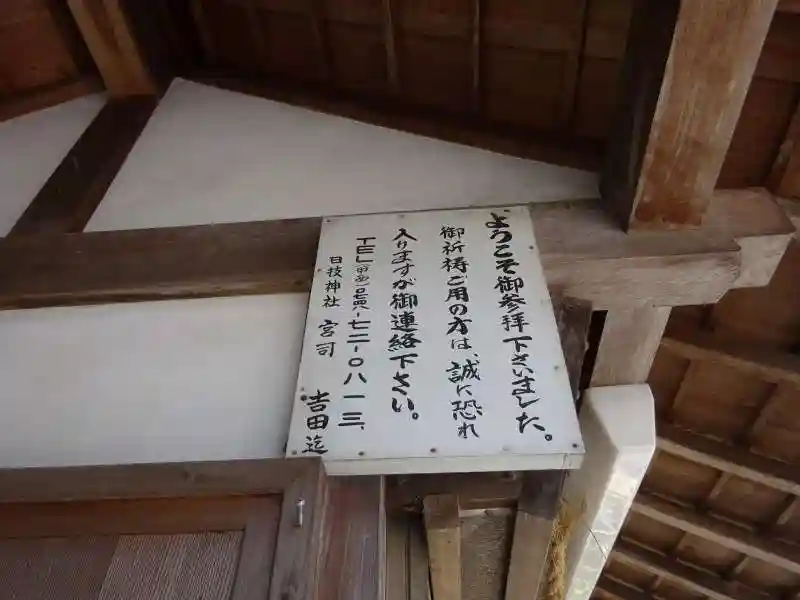 ようこそ御参拝下さいました。
御祈祷ご用の方は、誠に恐れ
入りますが御連絡下さい。
TEL 〇七四八-七二-〇八一三、
日枝神社 宮司 吉田迄